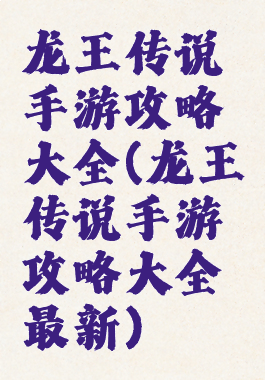 龙王传说
手游攻略
大全(龙王
传说手游
攻略大全
最新)